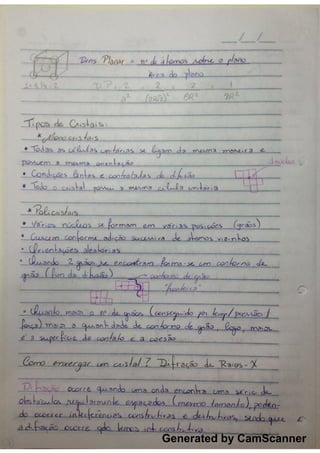 Dens Planar = nº de átomos sobre o plano
Área do plano
Tipos de Cristais:
* Monocristais
• Todas as células unitárias se ligam da mesma maneira e
possuem a mesma orientação
• Condições lentas e controladas de difusão
• Todo o cristal possui a mesma célula unitária
* Policristais
• Vários núcleos se formam em várias posições (grãos)
• Crescem conforme adição sucessiva de átomos vizinhos
• Orientações aleatórias
• Quando 2 grãos se encontram forma-se um contorno de
grão (fim da difusão)
contorno de grão
"fronteira"
• Quanto mais o nº de grãos (conseguido por temp/pressão/
força) mais a quantidade de contorno de grão, logo, maior
é a superfície de contato e a coesão
Como enxergar um cristal? Difração de Raios-X
Difração ocorre quando uma onda encontra uma série de
obstáculos regularmente espaçados (mesmo tamanho), poden-
do ocorrer interferências construtivas e destrutivas, sendo que
a difração ocorre qdo temos int construtiva.
Generated by CamScanner